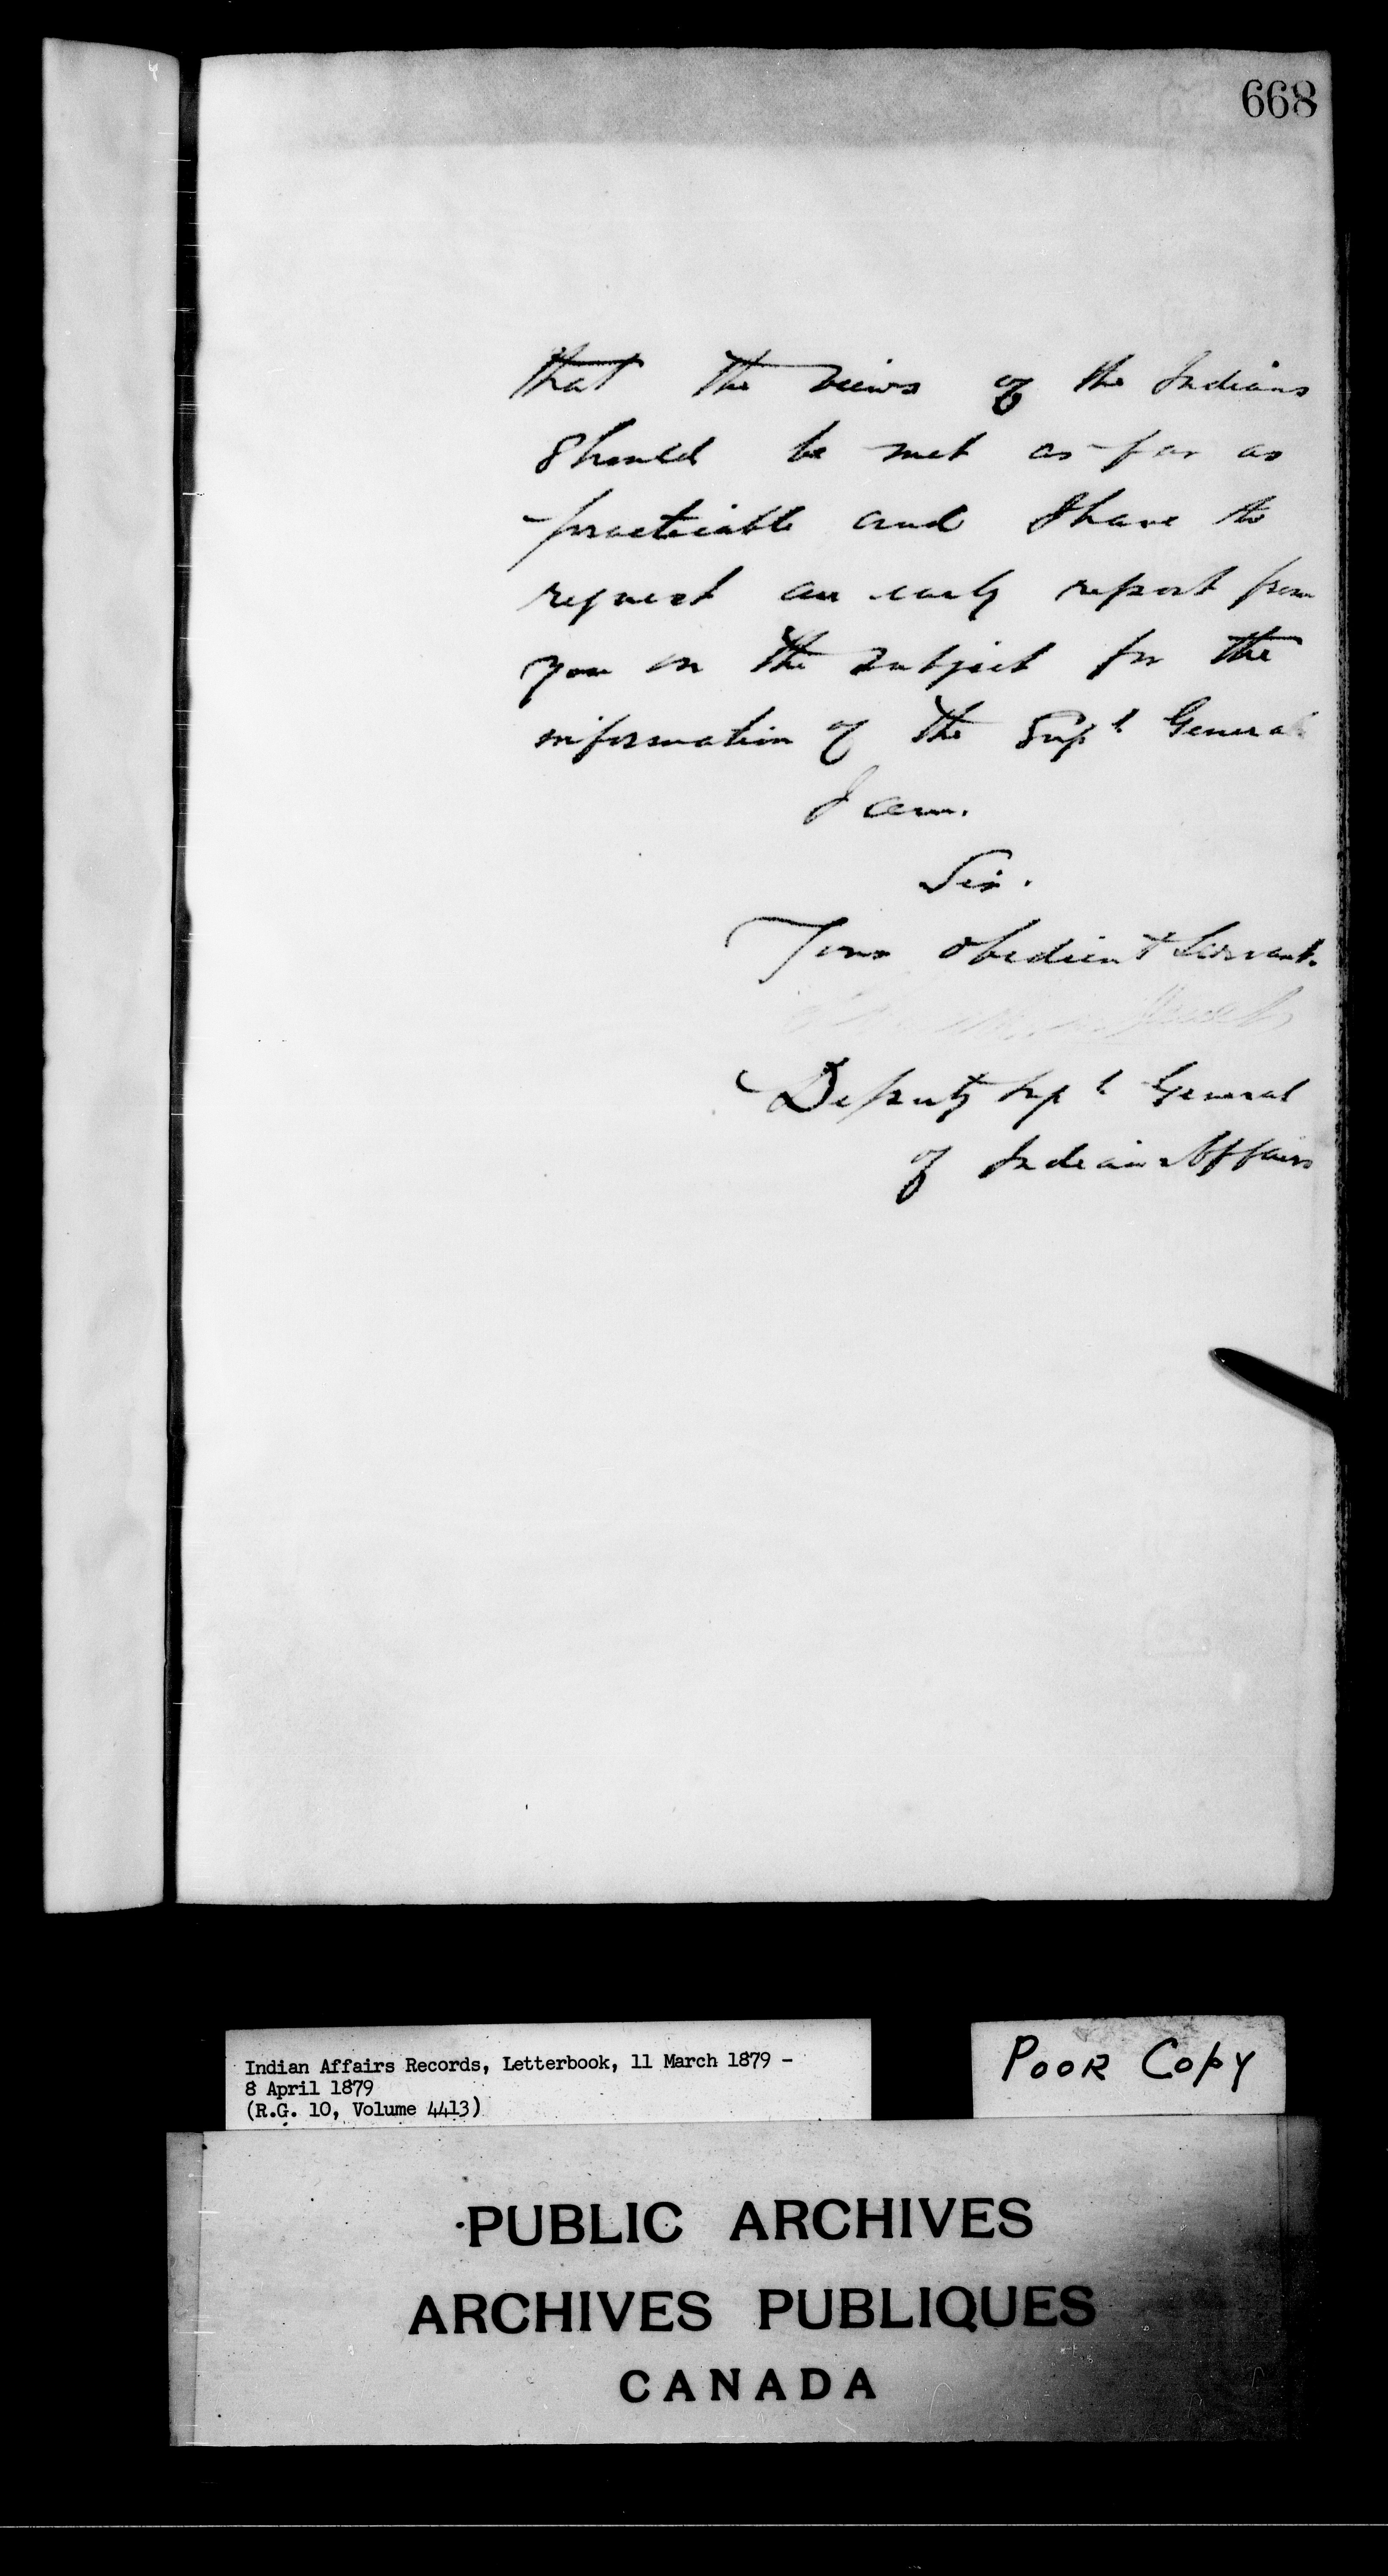 668
that the views of the Indians
should be met as far as
practicable and I have to
request an early report from
you on the subject for the
information of the Supt General
I am.
Sir.
Your obedient Servant.
Deputy Supt General
of Indian Affairs
Indian Affairs Records, Letterbook, 11 March 1879 -
8 April 1879
(R.G. 10, Volume 4413)
POOR COPY
PUBLIC ARCHIVES
ARCHIVES PUBLIQUES
CANADA